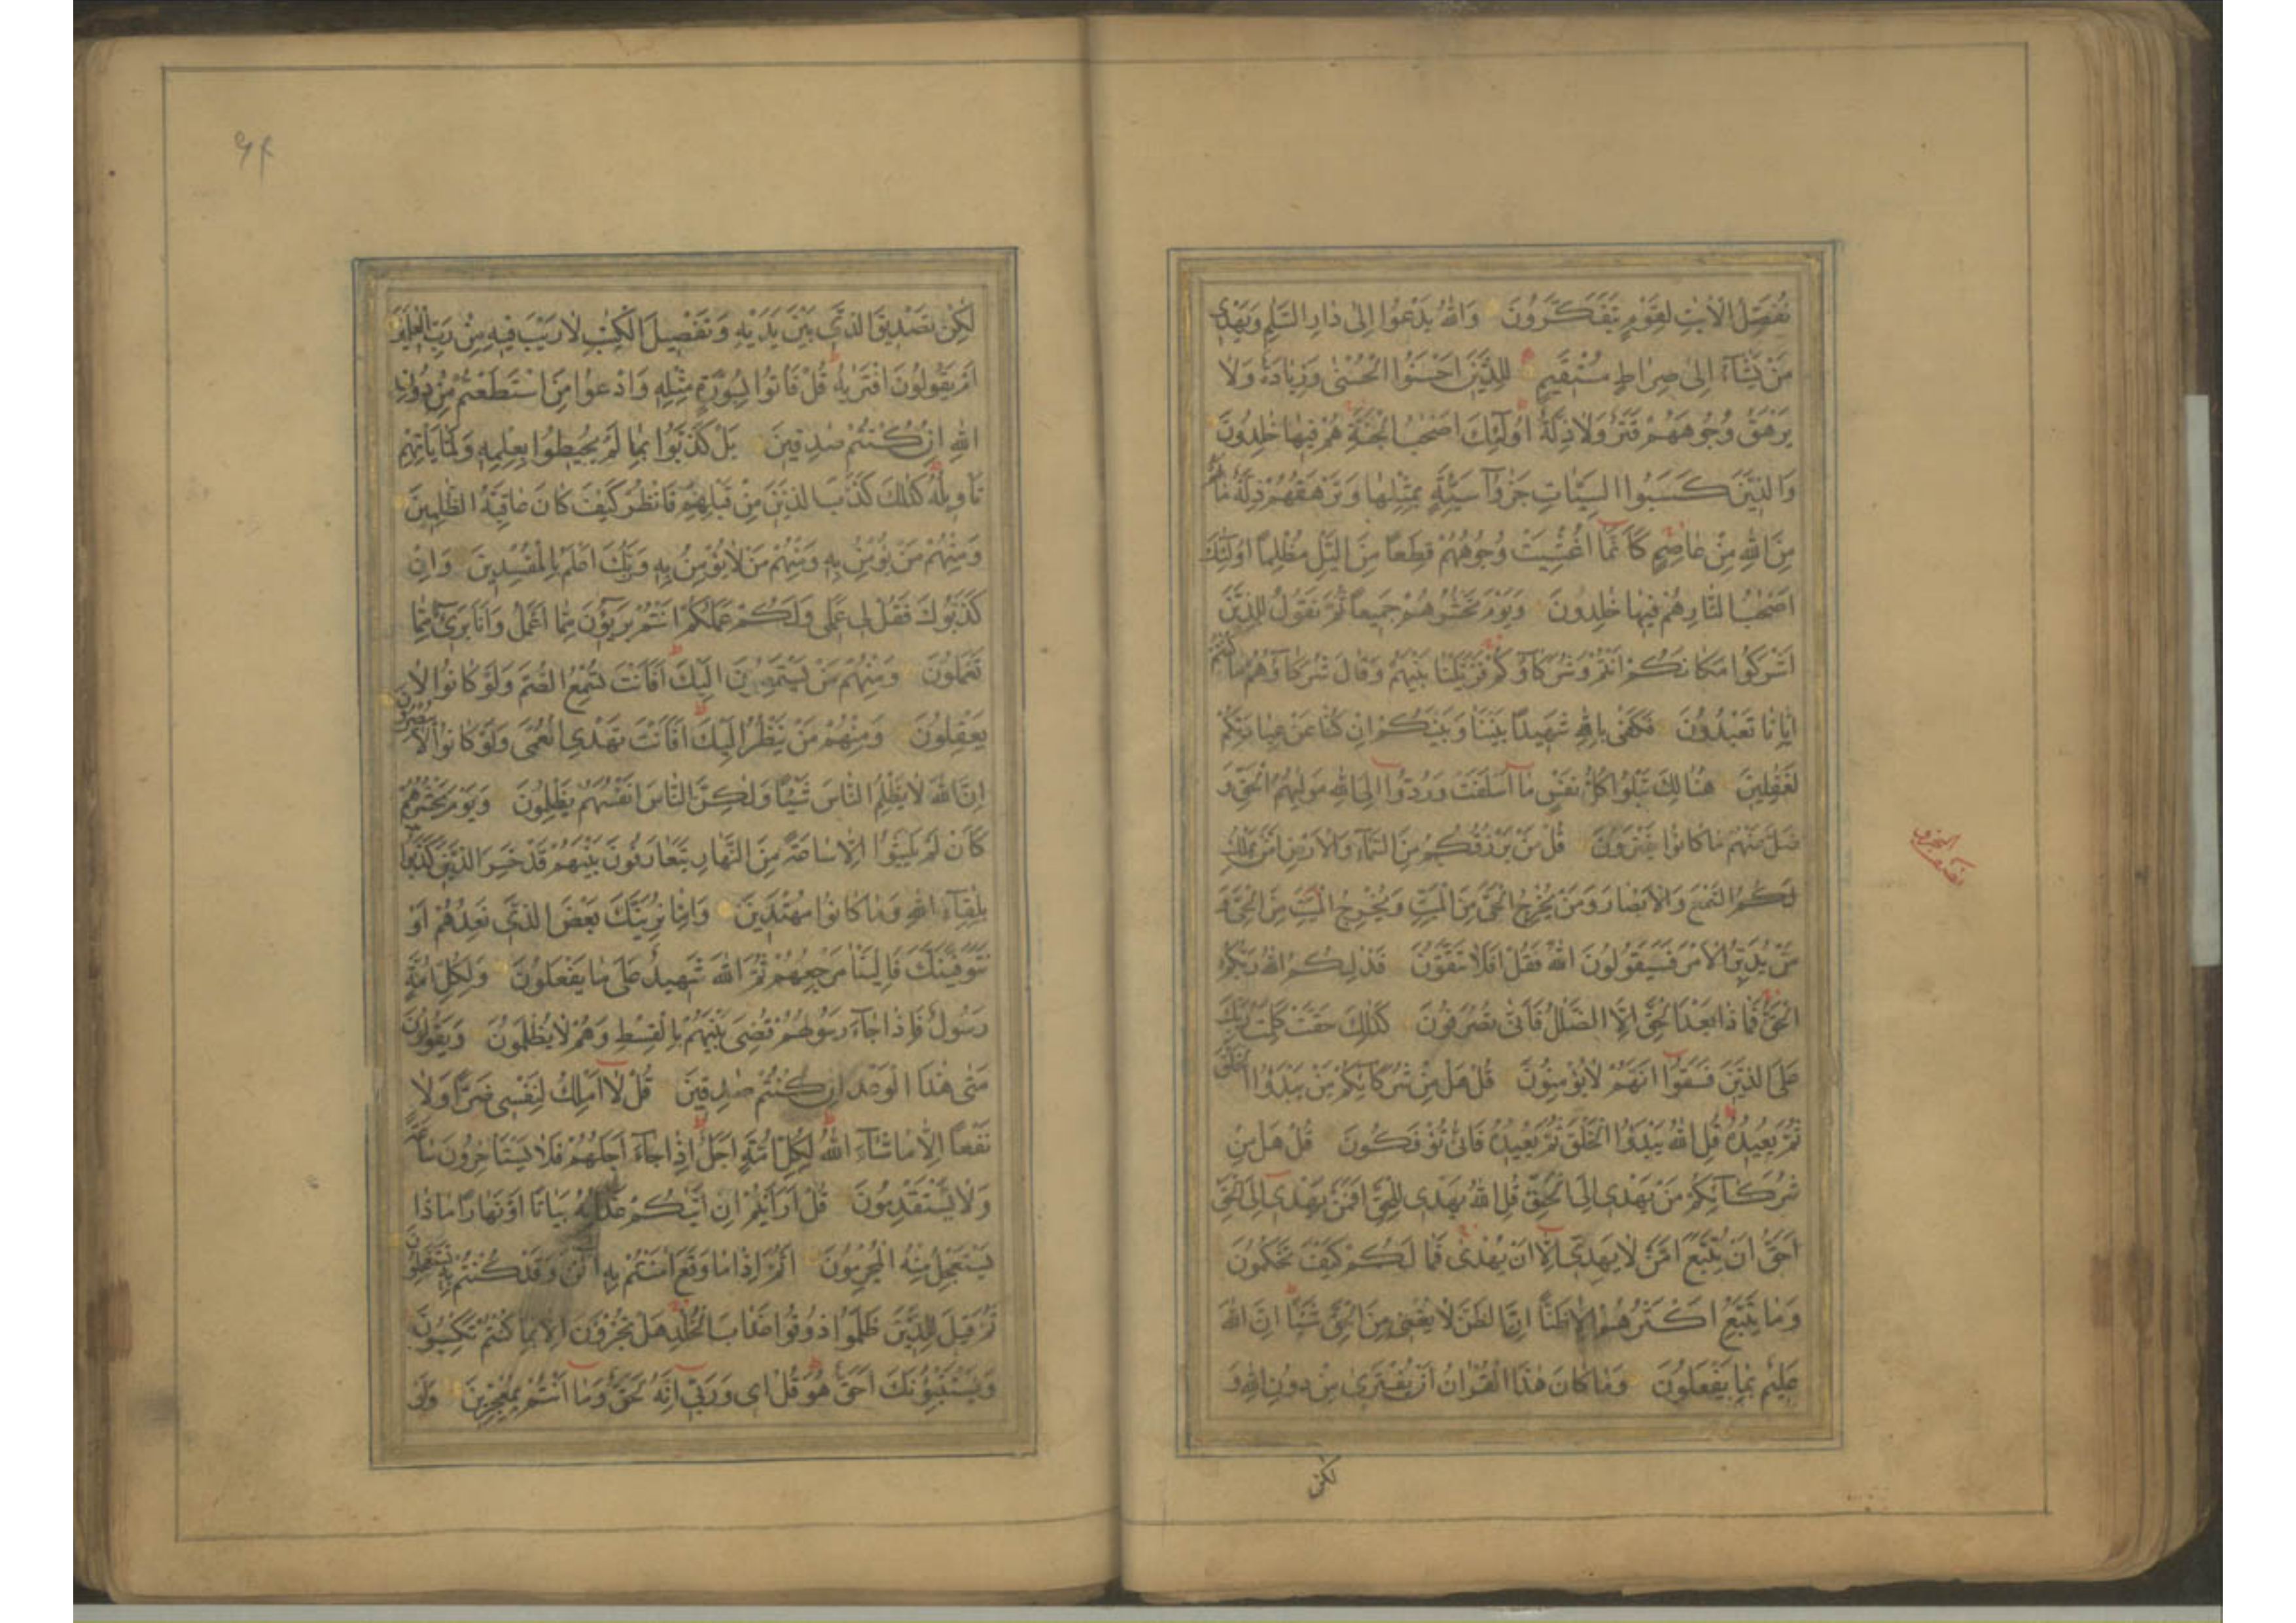 نُفَصِّلُ الْاٰيٰتِ لِقَوْمٍ يَتَفَكَّرُونَ وَاللّٰهُ يَدْعُوا اِلٰى دَارِ السَّلٰمِ وَيَهْدِى
مَنْ يَشَآءُ اِلٰى صِرَاطٍ مُسْتَقِيمٍ لِلَّذِينَ اَحْسَنُوا الْحُسْنٰى وَزِيَادَةٌ وَلَا
يَرْهَقُ وُجُوهَهُمْ قَتَرٌ وَلَا ذِلَّةٌ اُولٰٓئِكَ اَصْحٰبُ الْجَنَّةِ هُمْ فِيهَا خٰلِدُونَ
وَالَّذِينَ كَسَبُوا السَّيِّاٰتِ جَزَآؤُا سَيِّئَةٍ بِمِثْلِهَا وَتَرْهَقُهُمْ ذِلَّةٌ مَا لَهُمْ
مِنَ اللّٰهِ مِنْ عَاصِمٍ كَاَنَّمَا اُغْشِيَتْ وُجُوهُهُمْ قِطَعًا مِنَ الَّيْلِ مُظْلِمًا اُولٰٓئِكَ
اَصْحٰبُ النَّارِ هُمْ فِيهَا خٰلِدُونَ وَيَوْمَ نَحْشُرُهُمْ جَمِيعًا ثُمَّ نَقُولُ لِلَّذِينَ
اَشْرَكُوا مَكَانَكُمْ اَنْتُمْ وَشُرَكَآؤُكُمْ فَزَيَّلْنَا بَيْنَهُمْ وَقَالَ شُرَكَآؤُهُمْ مَا كُنْتُمْ
اِيَّانَا تَعْبُدُونَ فَكَفٰى بِاللّٰهِ شَهِيدًا بَيْنَنَا وَبَيْنَكُمْ اِنْ كُنَّا عَنْ عِبَادَتِكُمْ
لَغٰفِلِينَ هُنَالِكَ تَبْلُوا كُلُّ نَفْسٍ مَا اَسْلَفَتْ وَرُدُّوا اِلَى اللّٰهِ مَوْلٰيهُمُ الْحَقِّ وَ
ضَلَّ عَنْهُمْ مَا كَانُوا يَفْتَرُونَ قُلْ مَنْ يَرْزُقُكُمْ مِنَ السَّمَآءِ وَالْاَرْضِ اَمَّنْ يَمْلِكُ
السَّمْعَ وَالْاَبْصَارَ وَمَنْ يُخْرِجُ الْحَىَّ مِنَ الْمَيِّتِ وَيُخْرِجُ الْمَيِّتَ مِنَ الْحَىِّ وَ
مَنْ يُدَبِّرُ الْاَمْرَ فَسَيَقُولُونَ اللّٰهُ فَقُلْ اَفَلَا تَتَّقُونَ فَذٰلِكُمُ اللّٰهُ رَبُّكُمُ
الْحَقُّ فَمَا ذَا بَعْدَ الْحَقِّ اِلَّا الضَّلٰلُ فَاَنّٰى تُصْرَفُونَ كَذٰلِكَ حَقَّتْ كَلِمَتُ رَبِّكَ
عَلَى الَّذِينَ فَسَقُوا اَنَّهُمْ لَا يُؤْمِنُونَ قُلْ هَلْ مِنْ شُرَكَآئِكُمْ مَنْ يَبْدَؤُا الْخَلْقَ
ثُمَّ يُعِيدُهُ قُلِ اللّٰهُ يَبْدَؤُا الْخَلْقَ ثُمَّ يُعِيدُهُ فَاَنّٰى تُؤْفَكُونَ قُلْ هَلْ مِنْ
شُرَكَآئِكُمْ مَنْ يَهْدِى اِلَى الْحَقِّ قُلِ اللّٰهُ يَهْدِى لِلْحَقِّ اَفَمَنْ يَهْدِى اِلَى الْحَقِّ
اَحَقُّ اَنْ يُتَّبَعَ اَمَّنْ لَا يَهِدِّى اِلَّا اَنْ يُهْدٰى فَمَا لَكُمْ كَيْفَ تَحْكُمُونَ
وَمَا يَتَّبِعُ اَكْثَرُهُمْ اِلَّا ظَنًّا اِنَّ الظَّنَّ لَا يُغْنِى مِنَ الْحَقِّ شَيْئًا اِنَّ اللّٰهَ
عَلِيمٌ بِمَا يَفْعَلُونَ وَمَا كَانَ هٰذَا الْقُرْاٰنُ اَنْ يُفْتَرٰى مِنْ دُونِ اللّٰهِ وَ
لكن
نصف الجزو
۹۴
لٰكِنْ تَصْدِيقَ الَّذِى بَيْنَ يَدَيْهِ وَتَفْصِيلَ الْكِتٰبِ لَا رَيْبَ فِيهِ مِنْ رَبِّ الْعٰلَمِينَ
اَمْ يَقُولُونَ افْتَرٰيهُ قُلْ فَاْتُوا بِسُورَةٍ مِثْلِهِ وَادْعُوا مَنِ اسْتَطَعْتُمْ مِنْ دُونِ
اللّٰهِ اِنْ كُنْتُمْ صٰدِقِينَ بَلْ كَذَّبُوا بِمَا لَمْ يُحِيطُوا بِعِلْمِهِ وَلَمَّا يَاْتِهِمْ
تَاْوِيلُهُ كَذٰلِكَ كَذَّبَ الَّذِينَ مِنْ قَبْلِهِمْ فَانْظُرْ كَيْفَ كَانَ عَاقِبَةُ الظّٰلِمِينَ
وَمِنْهُمْ مَنْ يُؤْمِنُ بِهِ وَمِنْهُمْ مَنْ لَا يُؤْمِنُ بِهِ وَرَبُّكَ اَعْلَمُ بِالْمُفْسِدِينَ وَاِنْ
كَذَّبُوكَ فَقُلْ لِى عَمَلِى وَلَكُمْ عَمَلُكُمْ اَنْتُمْ بَرِيٓؤُنَ مِمَّا اَعْمَلُ وَاَنَا بَرِىءٌ مِمَّا
تَعْمَلُونَ وَمِنْهُمْ مَنْ يَسْتَمِعُونَ اِلَيْكَ اَفَاَنْتَ تُسْمِعُ الصُّمَّ وَلَوْ كَانُوا لَا
يَعْقِلُونَ وَمِنْهُمْ مَنْ يَنْظُرُ اِلَيْكَ اَفَاَنْتَ تَهْدِى الْعُمْىَ وَلَوْ كَانُوا لَا يُبْصِرُونَ
اِنَّ اللّٰهَ لَا يَظْلِمُ النَّاسَ شَيْئًا وَلٰكِنَّ النَّاسَ اَنْفُسَهُمْ يَظْلِمُونَ وَيَوْمَ يَحْشُرُهُمْ
كَاَنْ لَمْ يَلْبَثُوا اِلَّا سَاعَةً مِنَ النَّهَارِ يَتَعَارَفُونَ بَيْنَهُمْ قَدْ خَسِرَ الَّذِينَ كَذَّبُوا
بِلِقَآءِ اللّٰهِ وَمَا كَانُوا مُهْتَدِينَ وَاِمَّا نُرِيَنَّكَ بَعْضَ الَّذِى نَعِدُهُمْ اَوْ
نَتَوَفَّيَنَّكَ فَاِلَيْنَا مَرْجِعُهُمْ ثُمَّ اللّٰهُ شَهِيدٌ عَلٰى مَا يَفْعَلُونَ وَلِكُلِّ اُمَّةٍ
رَسُولٌ فَاِذَا جَآءَ رَسُولُهُمْ قُضِىَ بَيْنَهُمْ بِالْقِسْطِ وَهُمْ لَا يُظْلَمُونَ وَيَقُولُونَ
مَتٰى هٰذَا الْوَعْدُ اِنْ كُنْتُمْ صٰدِقِينَ قُلْ لَا اَمْلِكُ لِنَفْسِى ضَرًّا وَلَا
نَفْعًا اِلَّا مَا شَآءَ اللّٰهُ لِكُلِّ اُمَّةٍ اَجَلٌ اِذَا جَآءَ اَجَلُهُمْ فَلَا يَسْتَاْخِرُونَ سَاعَةً
وَلَا يَسْتَقْدِمُونَ قُلْ اَرَاَيْتُمْ اِنْ اَتٰيكُمْ عَذَابُهُ بَيَاتًا اَوْ نَهَارًا مَاذَا
يَسْتَعْجِلُ مِنْهُ الْمُجْرِمُونَ اَثُمَّ اِذَا مَا وَقَعَ اٰمَنْتُمْ بِهِ اٰلْـٰٔنَ وَقَدْ كُنْتُمْ بِهِ تَسْتَعْجِلُونَ
ثُمَّ قِيلَ لِلَّذِينَ ظَلَمُوا ذُوقُوا عَذَابَ الْخُلْدِ هَلْ تُجْزَوْنَ اِلَّا بِمَا كُنْتُمْ تَكْسِبُونَ
وَيَسْتَنْبِئُونَكَ اَحَقٌّ هُوَ قُلْ اِى وَرَبِّى اِنَّهُ لَحَقٌّ وَمَا اَنْتُمْ بِمُعْجِزِينَ وَلَوْ